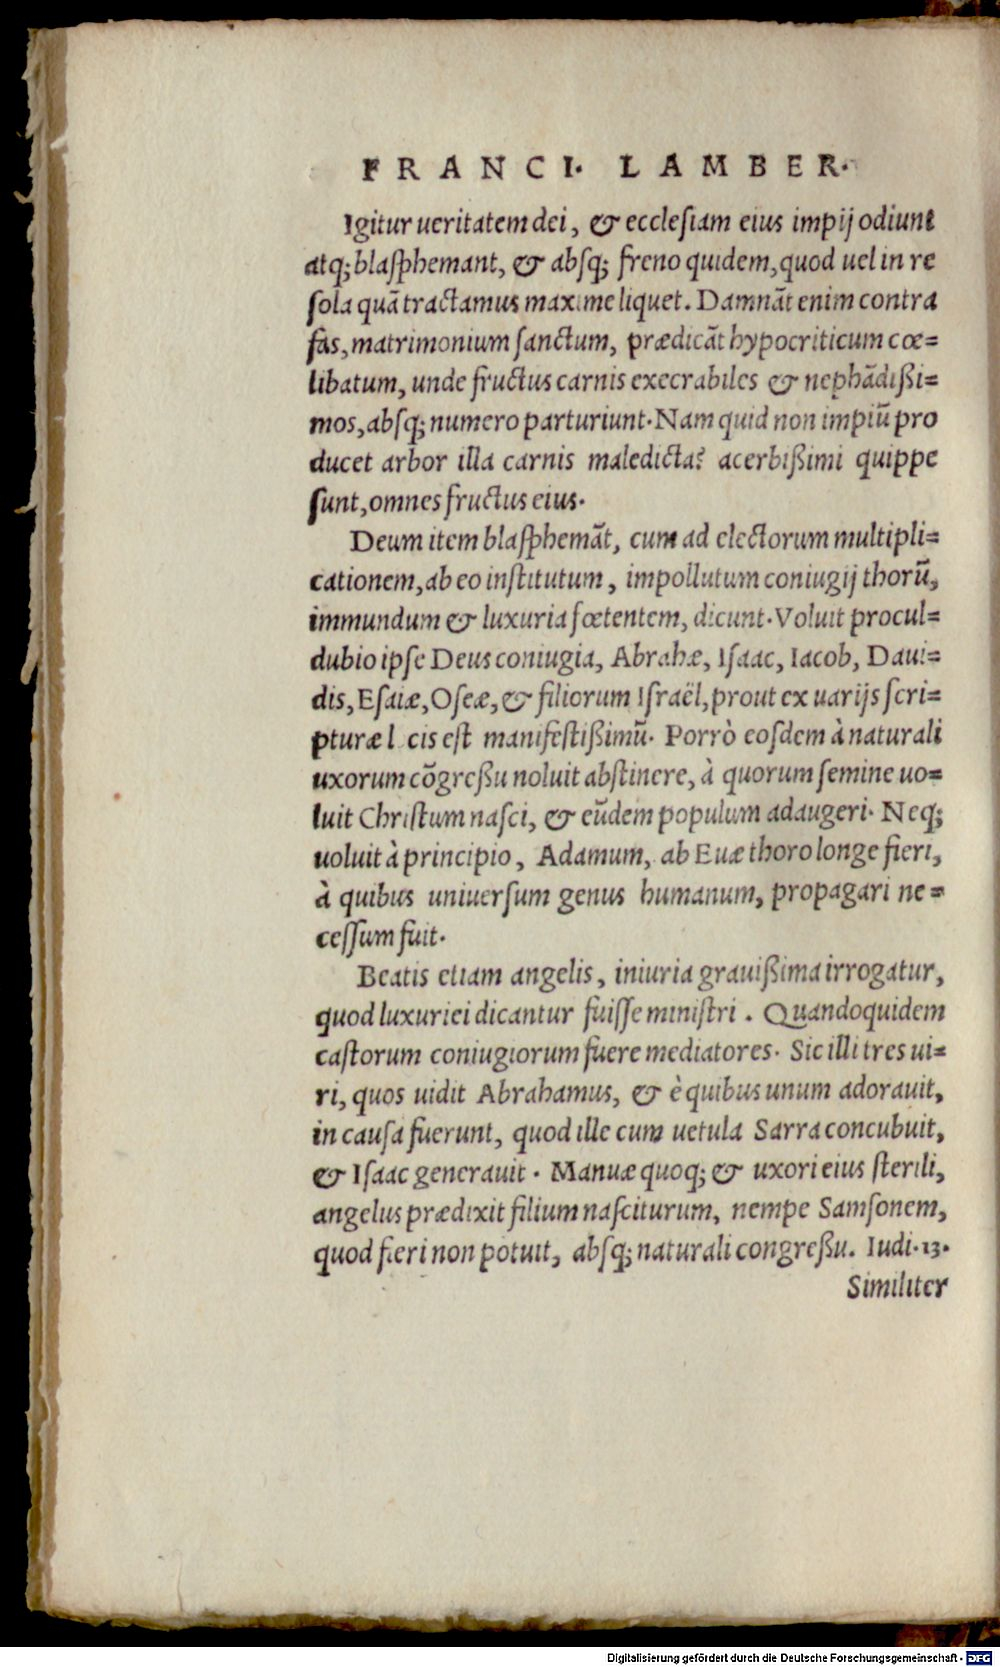 FRANCI. LAMBER.
Igitur ueritatem dei, & ecclesiam eius impij odiunt
atq; blasphemant, & absq; freno quidem, quod uel in re
sola quā tractamus maxime liquet. Damnāt enim contra
fas, matrimonium sanctum, prædicāt hypocriticum cœ=
libatum, unde fructus carnis execrabiles & nephādißi=
mos, absq; numero parturiunt. Nam quid non impiū pro
ducet arbor illa carnis maledicta? acerbißimi quippe
sunt, omnes fructus eius.
Deum item blasphemāt, cum ad electorum multipli=
cationem, ab eo institutum, impollutum coniugij thorū,
immundum & luxuria fœtentem, dicunt. Voluit procul=
dubio ipse Deus coniugia, Abrahæ, Isaac, Iacob, Daui=
dis, Esaiæ, Oseæ, & filiorum Israël, prout ex uarijs scri=
pturæ l cis est manifestißimū. Porrò eosdem à naturali
uxorum cōgreßu noluit abstinere, à quorum semine uo=
luit Christum nasci, & eūdem populum adaugeri. Neq;
uoluit à principio, Adamum, ab Euæ thoro longe fieri,
à quibus uniuersum genus humanum, propagari ne=
cessum fuit.
Beatis etiam angelis, iniuria grauißima irrogatur,
quod luxuriei dicantur fuisse ministri. Quandoquidem
castorum coniugiorum fuere mediatores. Sic illi tres ui=
ri, quos uidit Abrahamus, & è quibus unum adorauit,
in causa fuerunt, quod ille cum uetula Sarra concubuit,
& Isaac generauit. Manuæ quoq; & uxori eius sterili,
angelus prædixit filium nasciturum, nempe Samsonem,
quod fieri non potuit, absq; naturali congreßu. Iudi. 13.
Similiter
Digitalisierung gefördert durch die Deutsche Forschungsgemeinschaft - DFG